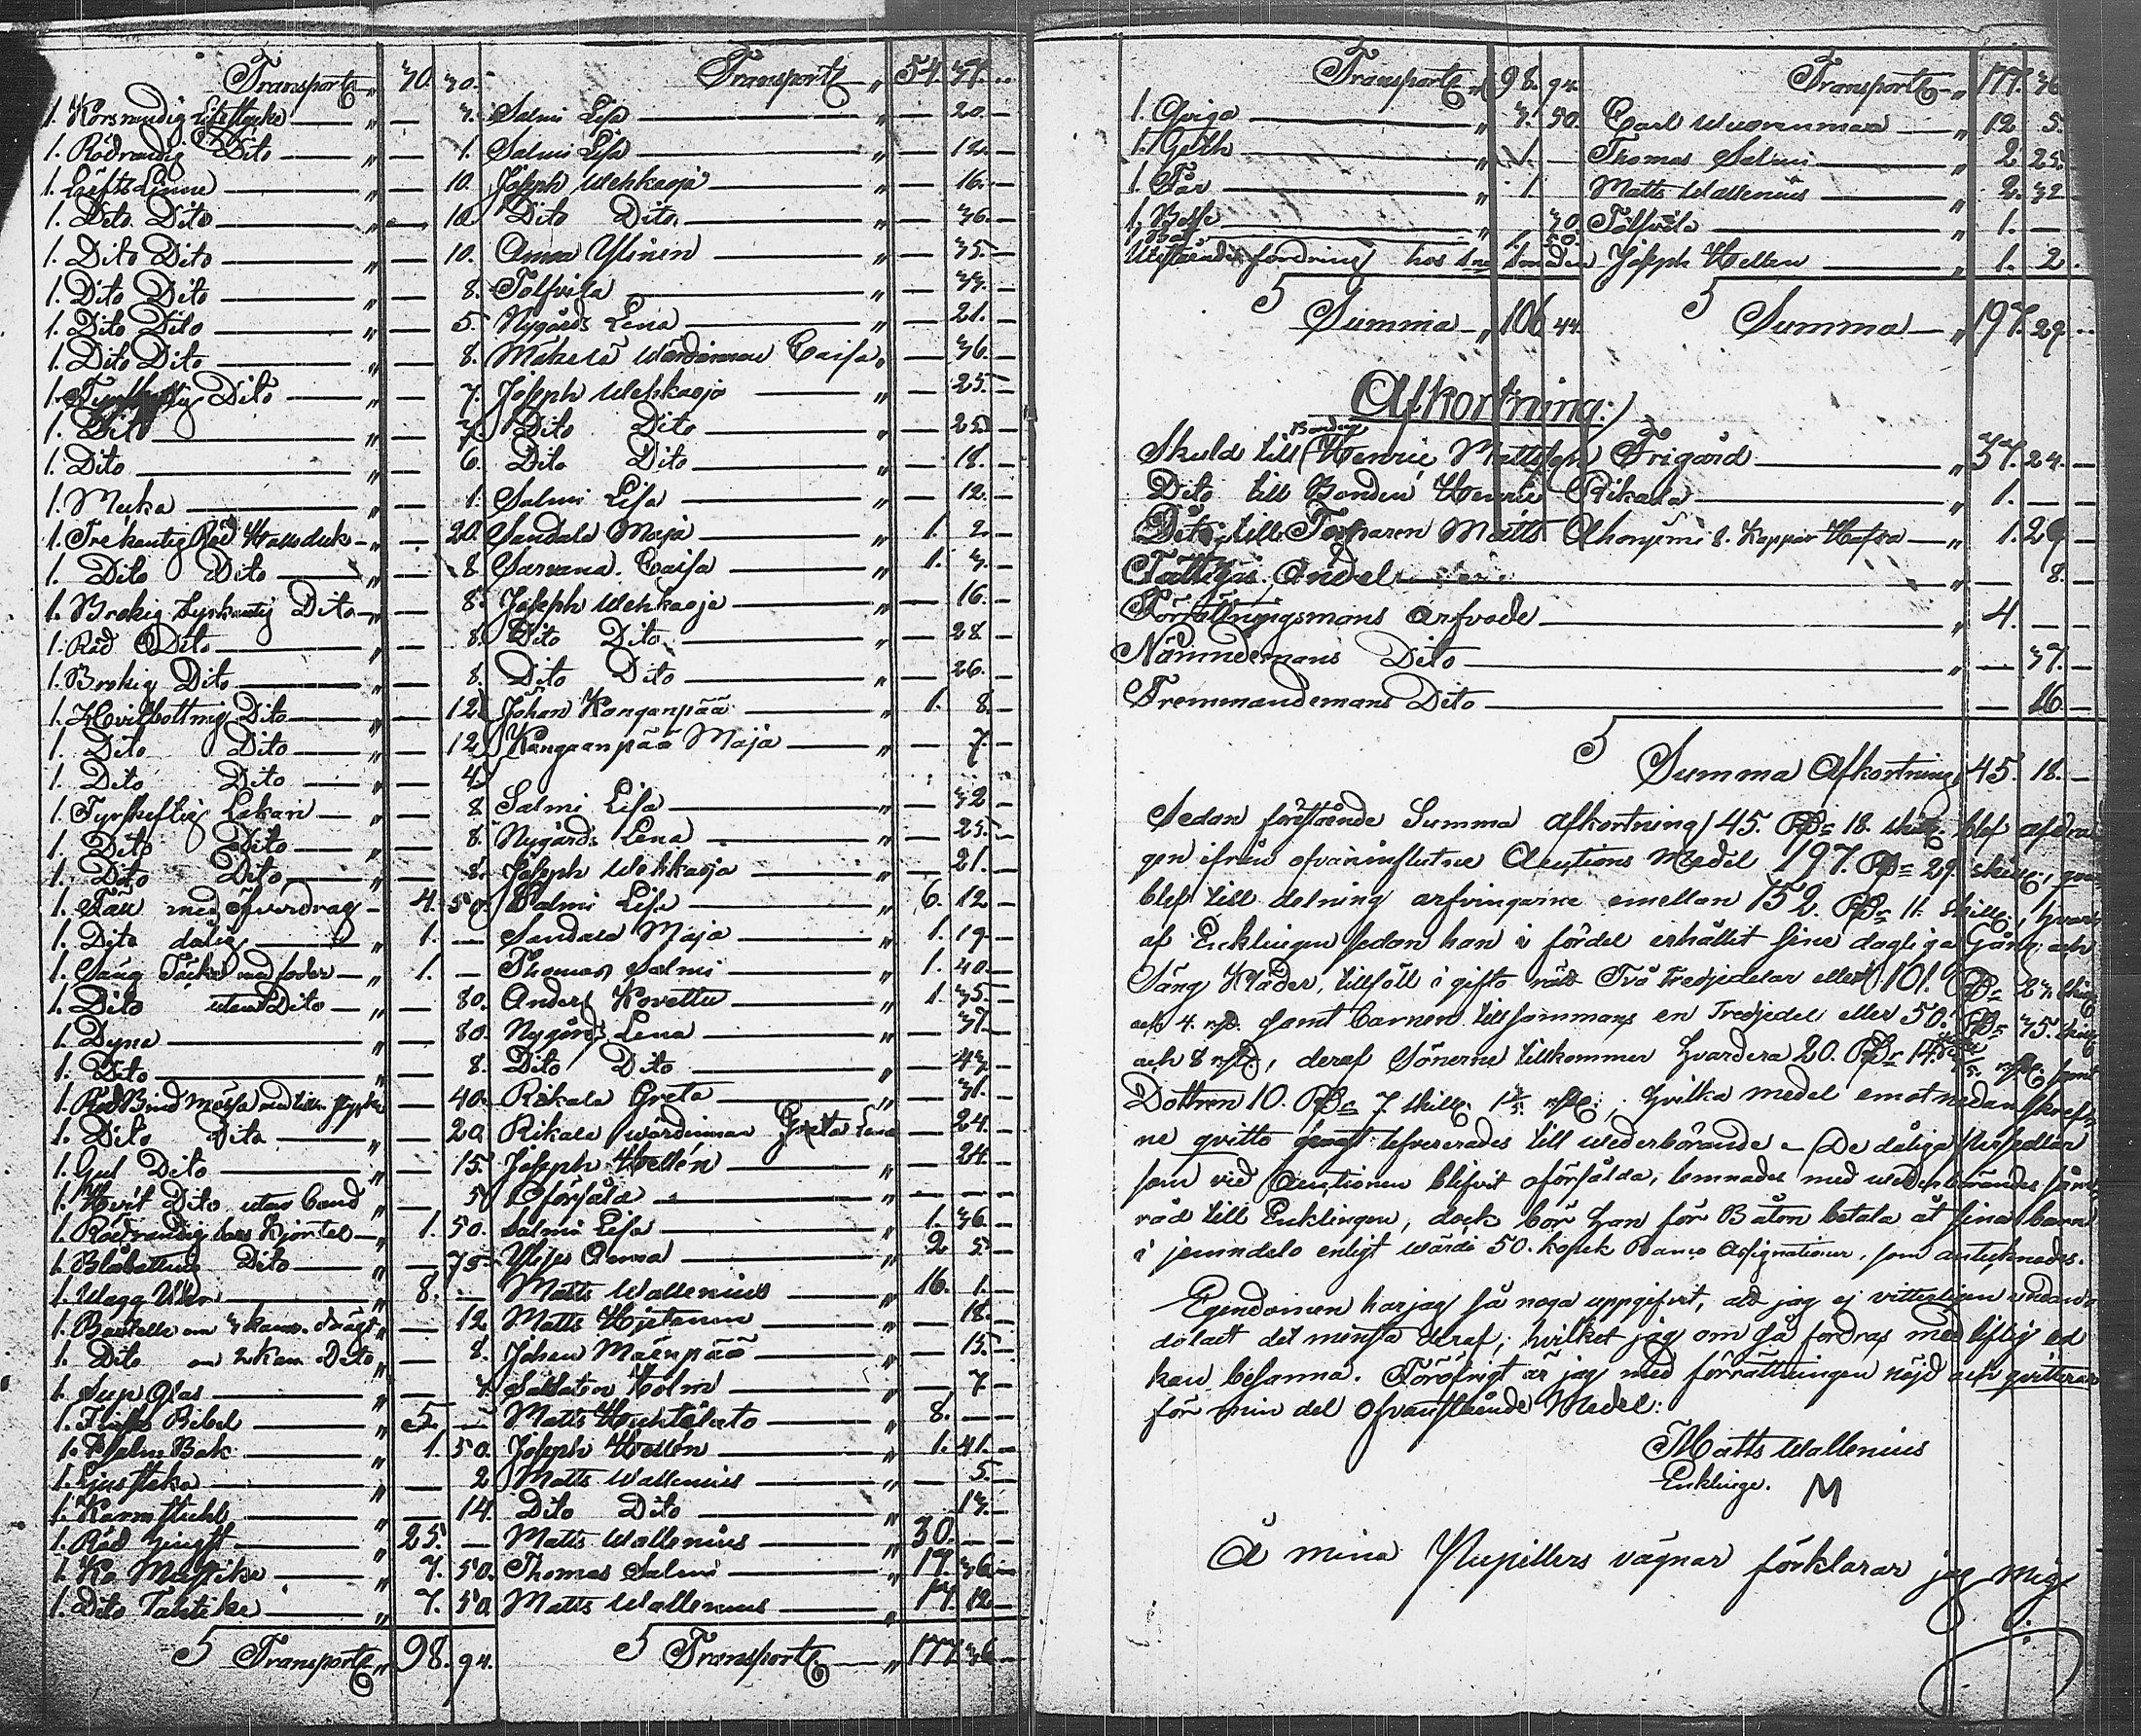 Transport " 30. 30. Transport " 54. 37.
1. Korsrandig Lifstycke " — 3. Salmi Lisa " — 20. —
1. Rödrandig Dito " — 1. Salmi Lisa " — 12. —
1. Linne " — 10. Joseph Wehkaoja " — 16. —
1. Dito Dito " — 10. Dito Dito " — 36. —
1. Dito Dito " — 10. Anna Ylinen " — 35. —
1. Dito Dito " — 8. Tolfvila " — 33. —
1. Dito Dito " — 5. Nygårds Lena " — 21. —
1. Dito Dito " — 8. Mäkelä Caisa " — 36. —
1. Dito " — 7. Joseph Wehkaoja " — 25. —
1. Dito " — 7. Dito Dito " — 25. —
1. Dito " — 6. Dito Dito " — 18. —
1. Muka " — 1. Salmi Lisa " — 12. —
1. Trekantig Röd Halsduk " — 20. Sandala Maja " 1. 2. —
1. Dito Dito " — 8. Sarvana Caisa " 1. 3. —
1. Brokig Dito " — 8. Joseph Wehkaoja " — 16. —
1. Röd Dito " — 8. Dito Dito " — 28 —
1. Brokig Dito " — 8. Dito Dito " — 26. —
1. Hvitbottnig Dito " — 12. Johan Kanganpää " 1. 8. —
1. Dito Dito " — 12. Kangaanpää Maja " — 7. —
1. Dito Dito " — 4.
1. Fyrskeftig Lakan " — 8 Salmi Lisa " — 32 —
1. Dito Dito " — 8. Nygårds Lena " — 25. —
1. Dito Dito " — 8. Joseph Wehkaoja " — 21. —
1. med öfverdrag " 4. 50. Salmi Lisa " 6. 12 —
1. Dito dålig " 1. — Sandala Maja " 1. 19. —
1. Säng Täcke med foder " 1. — Thomas Salmi " 1. 40. —
1. Dito utan Dito " — 80. Anders Kovettu " 1. 35. —
1. Dyna " — 80. Nygårds Lena " — 37. —
1. Dito " — 8. Dito Dito " — 43. —
1. Röd Bind Mössa med stycke " — 40. Rikala Greta " — 31. —
1. Dito Dito " — 20 Rikala Greta Lena — 24. —
1. Gul Dito " — 15. Joseph Hellén " — 24. —
1. Hvit Dito utan band " — 5. Oförsåld " — — —
1. Rödrandig Kjortel " 1. 50. Salmi Lisa " 1. 36. —
1. Blåbottnig Dito " — 75. Anna " 2 5 —
1. Wägg Uhr " 8. — Matts Wallenius " 16. 1. —
1. Bouteille om 3 kann. drägt " — 12 Matts Hjetanen " — 18. —
1. Dito om 2 kan. Dito " — 8. Johan Mäenpää " — 15. —
1. Sup Glas " — 3 Holm " — 7. —
1. Finsk Bibel " 5. — Matts " 8. — —
1. Psalm Bok " 1. 50. Joseph Hellén " 1. 41. —
1. Ljusstaka " — 2 Matts Wallenius " — 5. —
1. Karmstuhl " — 14. Dito Dito " — 13. —
1. Röd hingst " 25. — Matts Wallenius " 30. — —
1. Ko Mansike " 7. 50. Thomas Salmi " 17. 36 —
1. Dito Tähtike " 7. 50 Matts Wallenius " 17. 12 —
Transport " 98. 94. Transport " 177. 36
Transport " 98. 94. Transport " 177. 36
1. Qviga " 3. 50. Carl Wuorenmaa " 12 5.
1. " 1. — Thomas Salmi " 2. 25.
1. Får " 1. Matts Wallenius " 2. 32
1. " 30 Tolfvila " 1. —
Utestående fordring hos Bonden Joseph Hellen " 1. 2.
Summa " 106. 44. Summa " 197. 29
Afkortning:
Skuld till Bonden Henric Mattsson Frigård " 37. 24. —
Dito till Bonden Henric Rikala " 1. — —
Dito till Torparen Matts Ahonjimi 8. Kappar Hafra " 1. 29 —
Fattigas Andel " — 8. —
Förrättningsmans arfvode " 4. — —
Nämndemans Dito " — 37. —
Fremmandemans Dito — 16. —
Summa Afkortning 45. 18. —
Sedan förestående Summa afkortning 45. Rb 18. skill. blef afdra-
gen ifrån ofvaninflutne Auctions Medel 197. Rb 29 skill.,
blef till delning arfvingarne emellan 152. Rb 11. skill., hvaraf
af Enklingen sedan han i fördel erhållit sine dagliga Gång och
Säng Kläder, tillföll i gifto rätt Två tredjedelar eller 101. Rb 23 skill.
och 4. rst. samt barnen tillsammans en Tredjedel eller 50. Rb 35. skill.
och 8 rst., deraf Sönerne tillkommer hvardera 20. Rb 14. rst. samt
Dottren 10. Rb 7 skill. rst.; hvilka medel emot nedanskref-
ne qvitto lefvererades till wederbörande – De dåliga persedlar
som vid Auctionen blifvit oförsålda, lemnades med wederbörandes sam-
råd till Enklingen, dock bör han för Båten betala åt sina barn
i jemndelo enligt wärde 50. kopek Banco Assignationer, som antecknades.
Egendomen har jag så noga uppgifvit, att jag ej vitterligen undan-
dolgt det minsta deraf, hvilket jag om så fordras med liflig ed
kan besanna. Föröfrigt är jag med förrättningen nöjd och qvitterar
för min del ofvanstående Medel:
Matts Wallenius
Enklinge. M
Å mina Pupillers vägnar förklarar jag mig